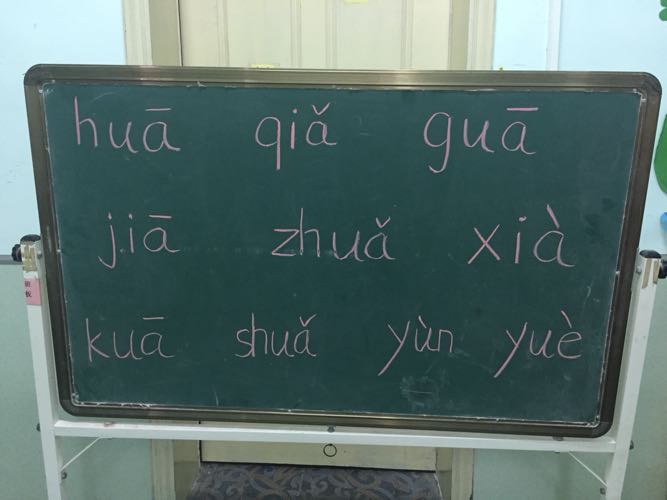 huā qiǎ guā
jiā zhuǎ xià
kuā shuǎ yùn yuè
班
板